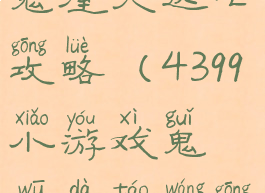 gōng lüè
攻略（4399
xiǎo yóu xì guǐ
小游戏鬼
wū dà táo wáng gōng